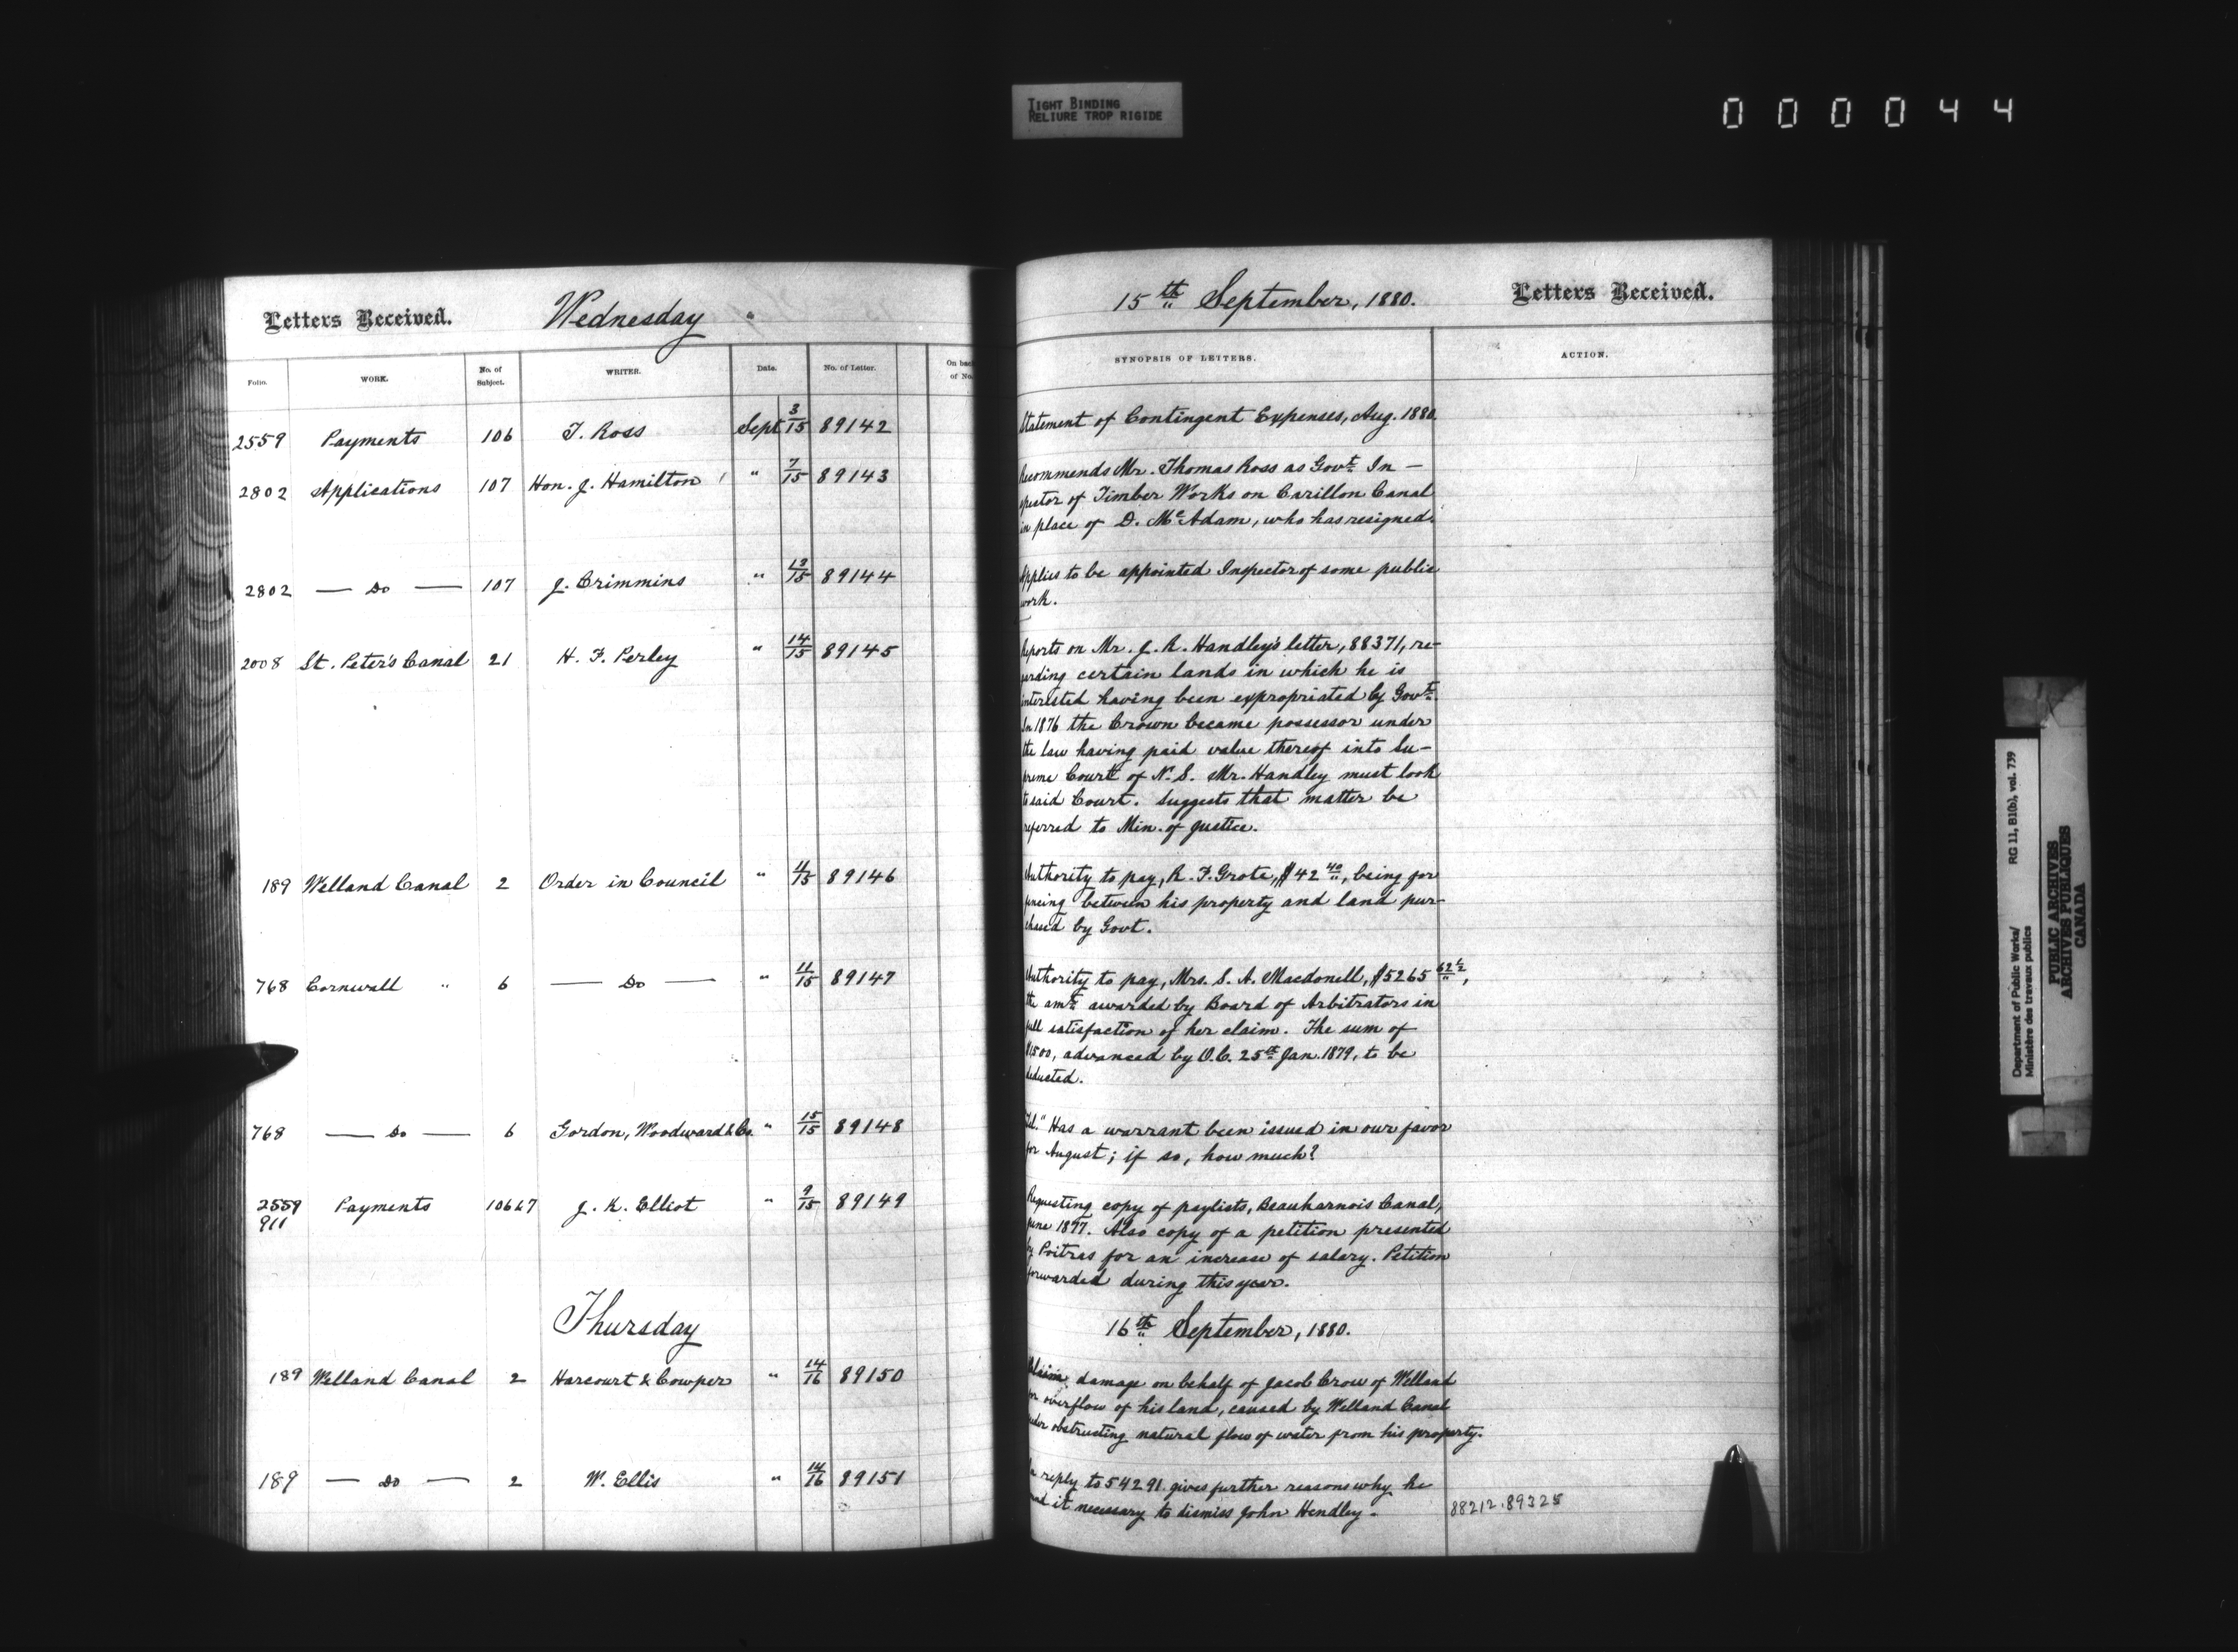 TIGHT BINDING
RELIURE TROP RIGIDE
000044
Letters Received. Wednesday
Folio. WORK. No. of Subject. WRITER. Date. No. of Letter. On back of No.
2559 Payments 106 T. Ross Sept 3/15 89142
2802 Applications 107 Hon. J. Hamilton " 7/15 89143
2802 — Do — 107 J. Crimmins " 13/15 89144
2008 St. Peter's Canal 21 H. F. Perley " 14/15 89145
189 Welland Canal 2 Order in Council " 11/15 89146
768 Cornwall " 6 — Do — " 11/15 89147
768 — Do — 6 Gordon, Woodward & Co. " 15/15 89148
2559 Payments 106 & 7 J. K. Elliot " 9/15 89149
911
Thursday
189 Welland Canal 2 Harcourt & Cowper " 14/16 89150
189 — Do — 2 W. Ellis " 14/16 89151
15th September, 1880. Letters Received.
SYNOPSIS OF LETTERS. ACTION.
Statement of Contingent Expenses, Aug. 1880.
Recommends Mr. Thomas Ross as Govt. In-
spector of Timber Works on Carillon Canal
in place of D. McAdam, who has resigned.
Applies to be appointed Inspector of some public
work.
Reports on Mr. J. R. Handley's letter, 88371, re-
garding certain lands in which he is
interested having been expropriated by Govt.
In 1876 the Crown became possessor under
the law having paid value thereof into Su-
preme Court of N. S. Mr. Handley must look
to said Court. Suggests that matter be
referred to Min. of Justice.
Authority to pay, R. F. Grote, $42 40/", being for
fencing between his property and land pur-
chased by Govt.
Authority to pay, Mrs. S. A. Macdonell, $5265 62½/",
the amt. awarded by Board of Arbitrators in
full satisfaction of her claim. The sum of
$1500, advanced by O.C. 25th Jan. 1879, to be
deducted.
"Tel." Has a warrant been issued in our favor
for August; if so, how much?
Requesting copy of paylists, Beauharnois Canal,
June 1897. Also copy of a petition presented
by Poitras for an increase of salary. Petition
forwarded during this year.
16th September, 1880.
Claims damage on behalf of Jacob Crow of Welland
for overflow of his land, caused by Welland Canal
obstructing natural flow of water from his property.
In reply to 54291. gives further reasons why he
found it necessary to dismiss John Hendley. 88212.89325
Department of Public Works/ RG 11, B1(b), vol. 739
Ministère des travaux publics
PUBLIC ARCHIVES
ARCHIVES PUBLIQUES
CANADA